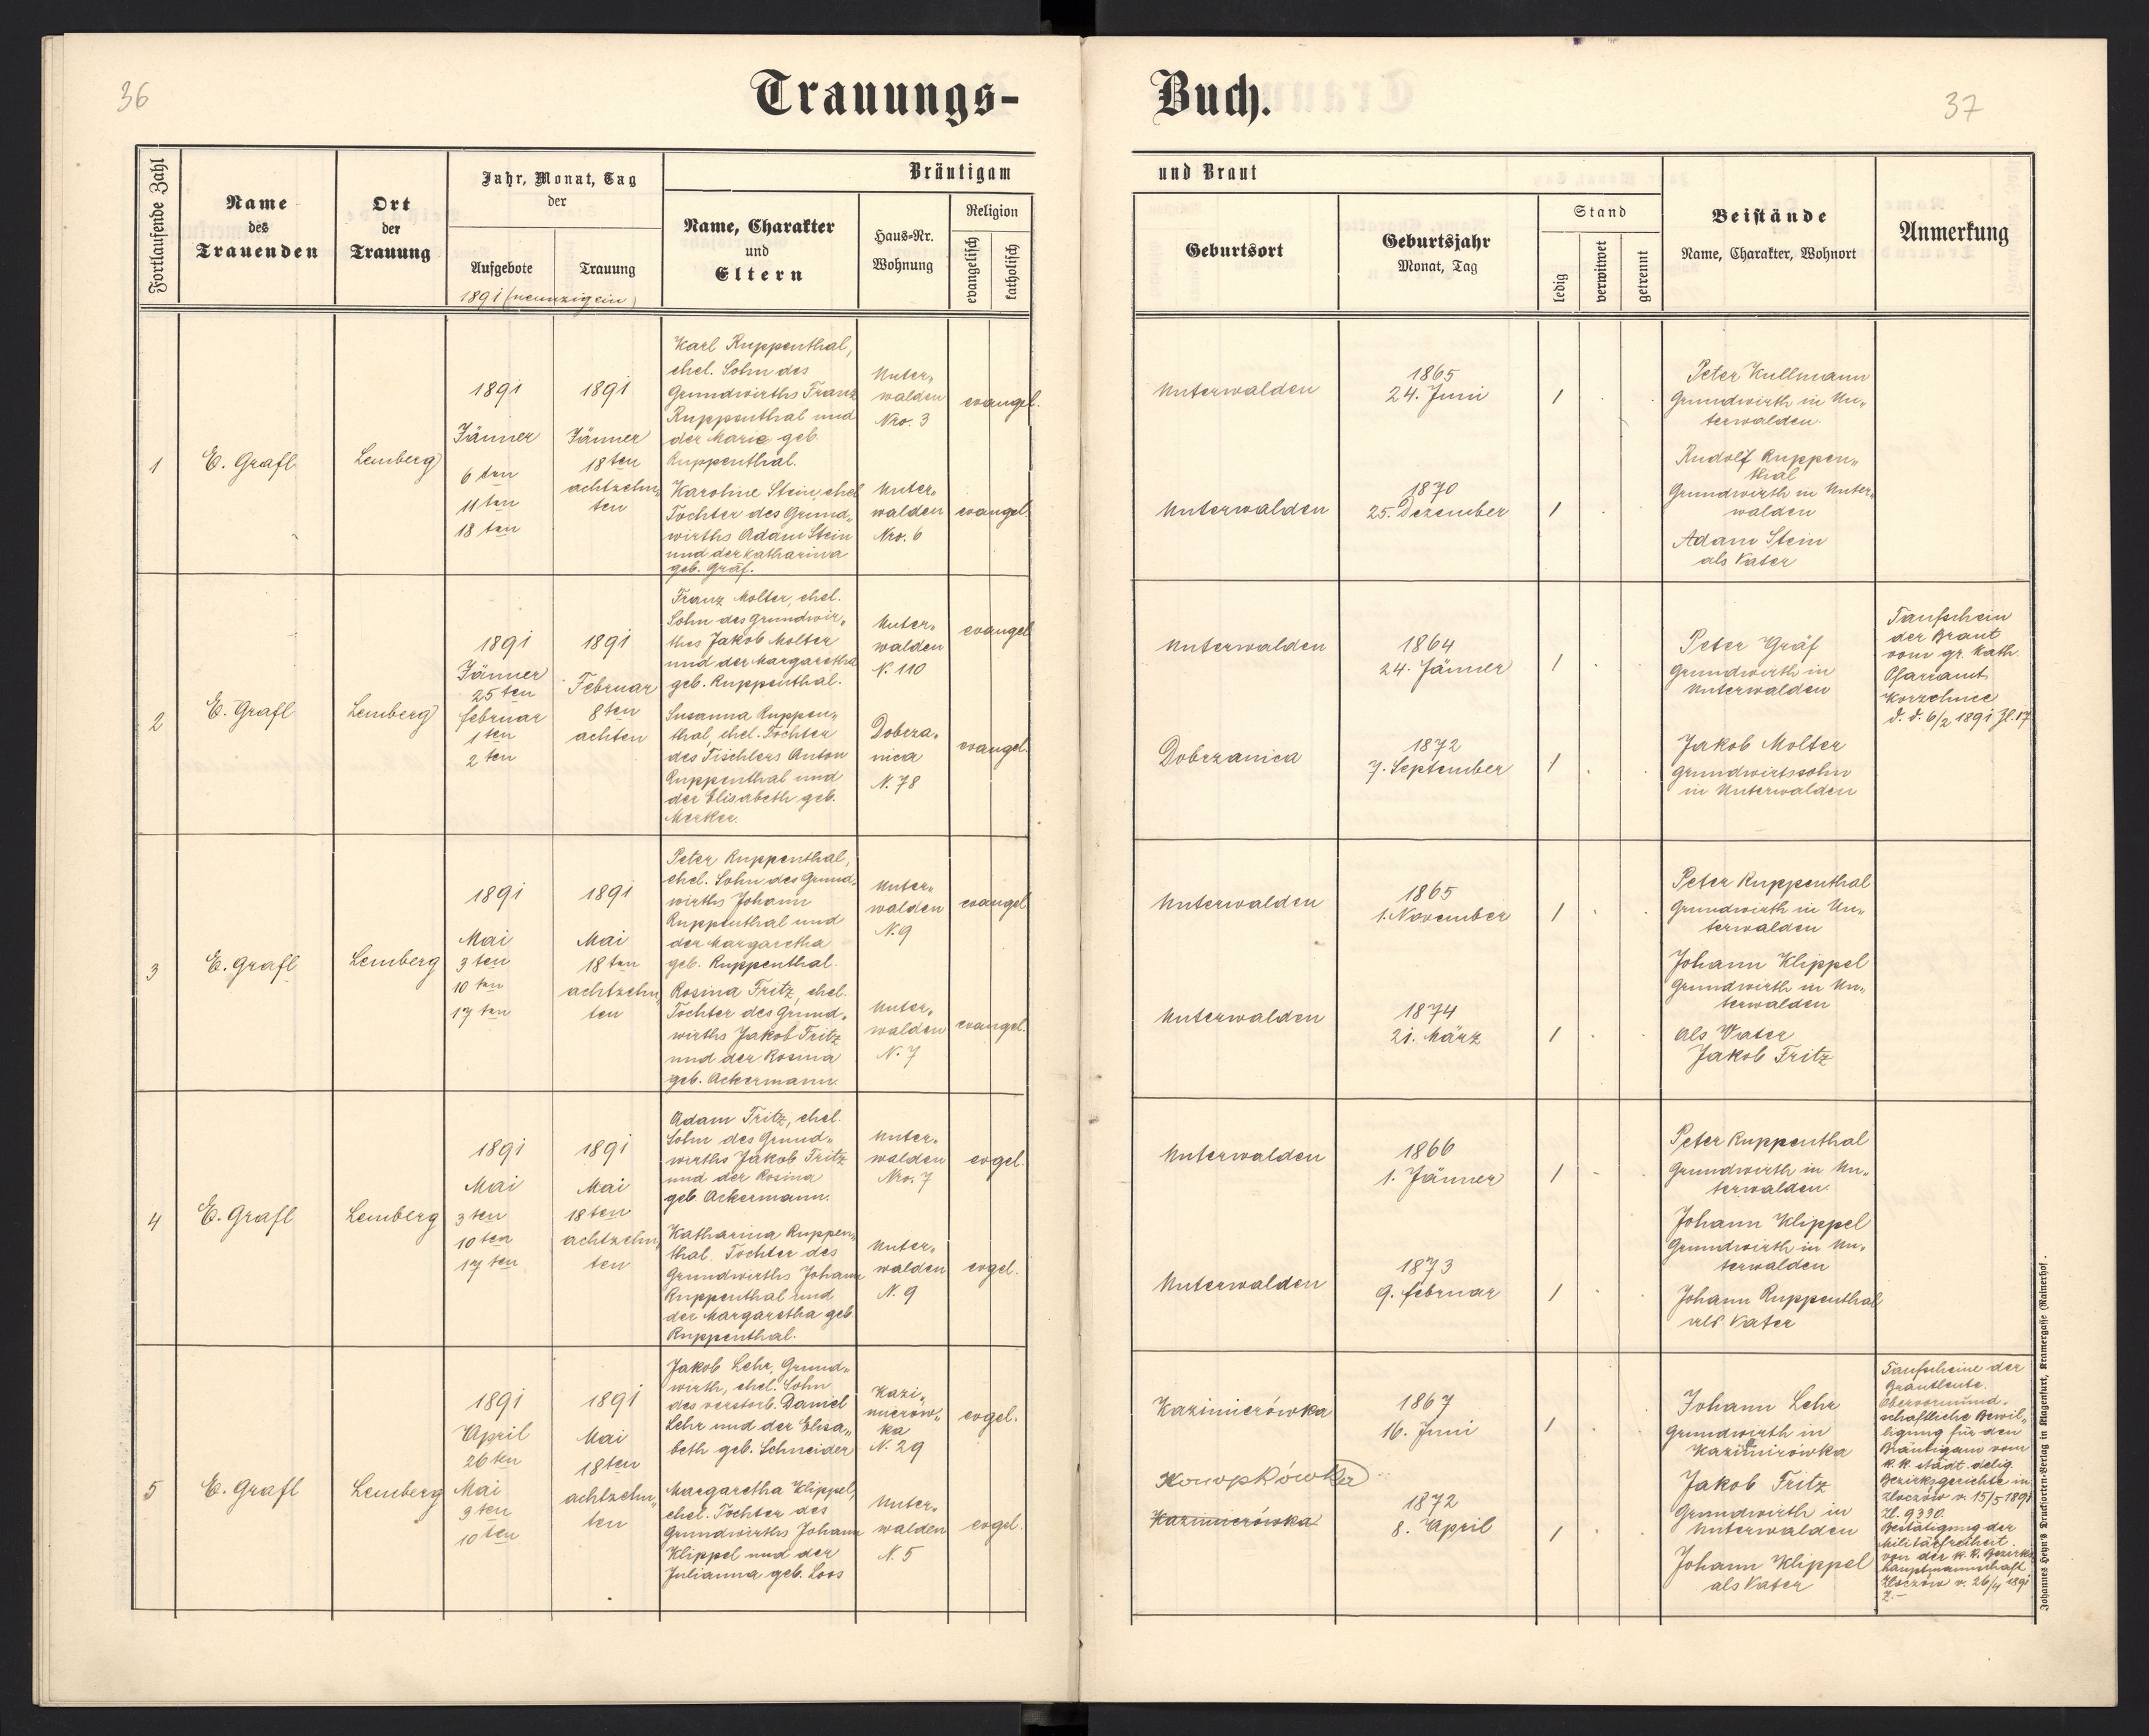 36
Trauungs-
Buch.
37
Fortlaufende Zahl
Name
des
Trauenden
Ort
der
Trauung
Jahr, Monat, Tag
der
Aufgebote
Trauung
1891 (neunzigein)
Bräutigam
Name, Charakter
und
Eltern
Haus-Nr.
Wohnung
Religion
evangelisch
katholisch
und Braut
Geburtsort
Geburtsjahr
Monat, Tag
Stand
ledig
verwitwet
getrennt
Beistände
Name, Charakter, Wohnort
Anmerkung
1
E. Grafl
Lemberg
1891
Jänner
6 ten
11 ten
18 ten
1891
Jänner
18 ten
achtzehn„
ten
Karl Ruppenthal,
ehel. Sohn des
Grundwirths Franz
Ruppenthal und
der Marie geb.
Ruppenthal.
Unter„
walden
Nro. 3
evangel.
Karoline Stein, ehel
Tochter des Grund„
wirths Adam Stein
und der Katharina
geb. Gräf.
Unter„
walden
Nro. 6
evangel.
Unterwalden
1865
24. Juni
1
Unterwalden
1870
25. Dezember
1
Peter Kullmann
Grundwirth in Un„
terwalden.
Rudolf Ruppen„
thal
Grundwirth in Unter„
walden
Adam Stein
als Vater
2
E. Grafl
Lemberg
1891
Jänner
25 ten
februar
1 ten
2 ten
1891
Februar
8 ten
achten
Franz Molter, ehel.
Sohn des Grundwir„
thes Jakob Molter
und der Margaretha
geb. Ruppenthal.
Unter„
walden
N. 110
evangel
Susanna Ruppen„
thal, ehel. Tochter
des Tischlers Anton
Ruppenthal und
der Elisabeth geb.
Merker.
Dobrza„
nica
N. 78
evangel.
Unterwalden
1864
24. Jänner
1
Dobrzanica
1872
7. September
1
Peter Gräf
Grundwirth in
Unterwalden
Jakob Molter
Grundwirtssohn
in Unterwalden
Taufschein
der Braut
vom gr. kath.
Pfarramt
Korzelnce
d. d. 6/2 1891 Zl. 17
3
E. Grafl
Lemberg
1891
Mai
3 ten
10 ten
17 ten
1891
Mai
18 ten
achtzehn„
ten
Peter Ruppenthal,
ehel. Sohn des Grund„
wirths Johann
Ruppenthal und
der Margaretha
geb. Ruppenthal.
Unter„
walden
N. 9
evangel
Rosina Fritz, ehel.
Tochter des Grund„
wirths Jakob Fritz
und der Rosina
geb. Ackermann.
Unter„
walden
N. 7
evangel.
Unterwalden
1865
1. November
1
Unterwalden
1874
21. März
1
Peter Ruppenthal
Grundwirth in Un„
terwalden
Johann Klippel
Grundwirth in Un„
terwalden
als Vater
Jakob Fritz
4
E. Grafl
Lemberg
1891
Mai
3 ten
10 ten
17 ten
1891
Mai
18 ten
achtzehn„
ten
Adam Fritz, ehel.
Sohn des Grund„
wirths Jakob Fritz
und der Rosina
geb. Ackermann.
Unter„
walden
Nro. 7
evgel.
Katharina Ruppen„
thal. Tochter des
Grundwirths Johann
Ruppenthal und
der Margaretha geb.
Ruppenthal.
Unter„
walden
N. 9
evgel.
Unterwalden
1866
1. Jänner
1
Unterwalden
1873
9. februar
1
Peter Ruppenthal
Grundwirth in Un„
terwalden.
Johann Klippel
Grundwirth in Un„
terwalden
Johann Ruppenthal
als Vater
5
E. Grafl
Lemberg
1891
April
26 ten
Mai
3 ten
10 ten
1891
Mai
18 ten
achtzehn„
ten
Jakob Lehr, Grund„
wirth, ehel. Sohn
des verstorb. Daniel
Lehr und der Elisa„
beth geb. Schneider
Kazi„
mierów„
ka
N. 29
evgel.
Margaretha Klippel,
ehel. Tochter des
Grundwirths Johann
Klippel und der
Julianna geb. Loos
Unter„
walden
N. 5
evgel.
Kazimierówka
1867
16. Juni
1
Konopkówka
Kazimierówka
1872
8. April
1
Johann Lehr
Grundwirth in
Kazimirówka
Jakob Fritz
Grundwirth in
Unterwalden
Johann Klippel
als Vater
Taufscheine der
Brautleute.
Obervormund„
schaftliche Bewil„
ligung für den
Bräutigam vom
k. k. städt. delig.
Bezirksgerichte in
Zloczów v. 15/5 1891
Zl. 9330.
Bestätigung der
Militärfreiheit
von der k. k. Bezirks
hauptmannschaft
Zloczów v. 26/4 1891
Z. –
Johannes Heyn's Drucksorten-Verlag in Klagenfurt, Kramergasse (Rainerhof.